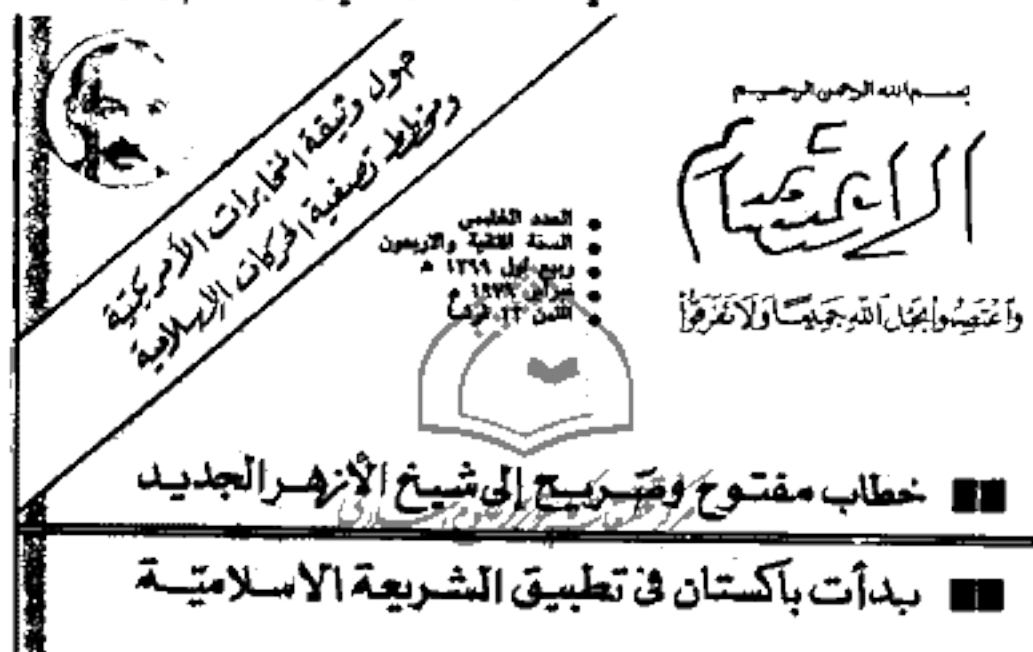 بسم الله الرحمن الرحيم
الاعتصام
وَاعْتَصِمُوا بِحَبْلِ اللهِ جَمِيعًا وَلَا تَفَرَّقُوا
حول وثيقة المخابرات الأمريكية
ومخطط تصفية الحركات الإسلامية
العدد الخامس
السنة الثانية والأربعون
ربيع أول ١٣٩٩ هـ
فبراير ١٩٧٩ م
الثمن ١٢ قرشا
خطاب مفتوح وصريح إلى شيخ الأزهر الجديد
بدأت باكستان فى تطبيق الشريعة الاسلامية